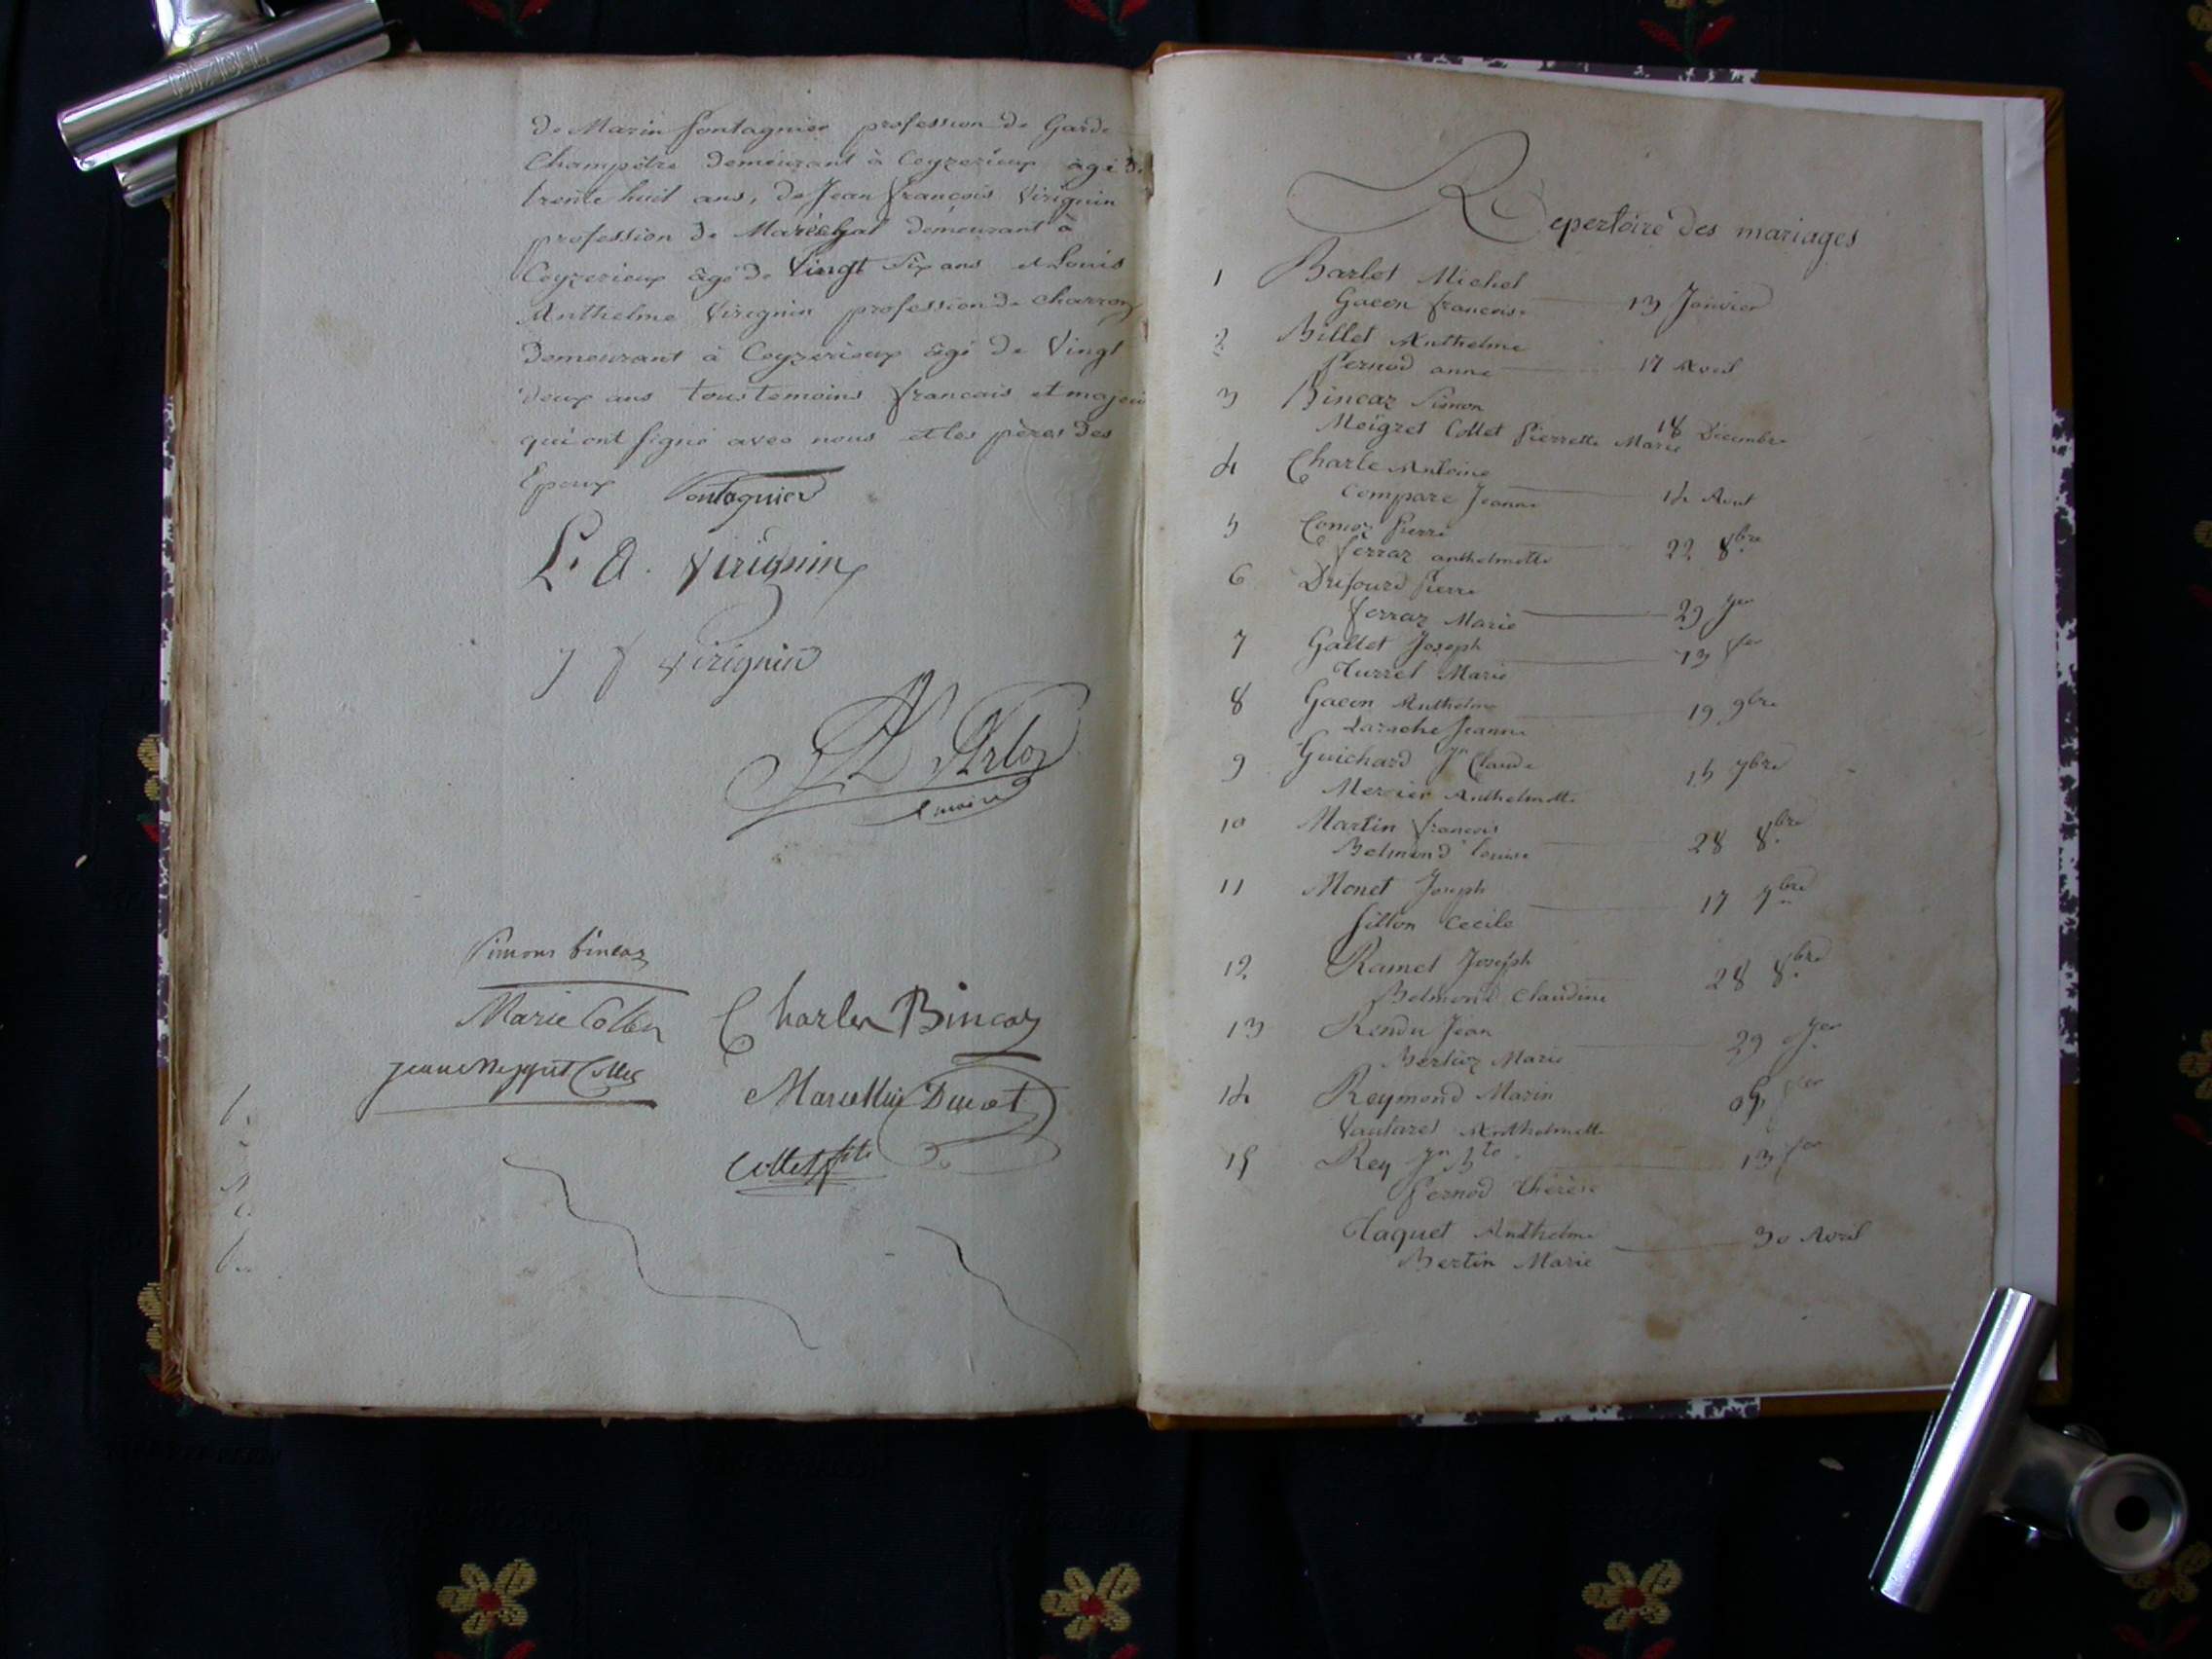 de Marin fontagnier profession de Garde
Champêtre demeurant à Ceyzerieux âgé d.
trente huit ans, de Jean françois Virignin
profession de Maréchal demeurant à
Ceyzerieux âgé de Vingt Six ans et Louis
Anthelme Virignin profession de charron
demeurant à Ceyzerieux âgé de Vingt
deux ans tous temoins francais et majeu
qui ont signé avec nous et les pères des
Epoux fontagnier
L. A. Virignin
J f Virignin
Arloz
maire
Simons bincaz
Marie Collet
Charles Bincaz
Marcellin Ducret
Collet fils
Repertoire des mariages
1 Barlet Michel
Gacon francoise 13 Janvier
2 Billet Anthelme
Pernod anne 17 Avril
3 Bincaz Simon
Meigret Collet Pierrette Marie 18 Décembre
4 Charle Antoine
Compare Jeanne 14 Aout
5 Comoz Pierre
ferraz anthelmette 22 8bre
6 Dufourd Pierre
ferraz Marie 29 Jer
7 Gallet Joseph
Turrel Marie 13 fer
8 Gacon Anthelme
Laroche Jeanne 19 9bre
9 Guichard Jn Claude
Mercier Anthelmette 15 7bre
10 Martin francois
Belmond Louise 28 8bre
11 Monet Joseph
fillon Cecile 17 7bre
12 Ramel Joseph
Belmond Claudine 28 8bre
13 Rendu Jean
Berlioz Marie 29 Jer
14 Reymond Marin
Anthelmette
15 Rey Jn Bte 13 fer
Pernod thérèse
Taquet Anthelme 30 Avril
Bertin Marie